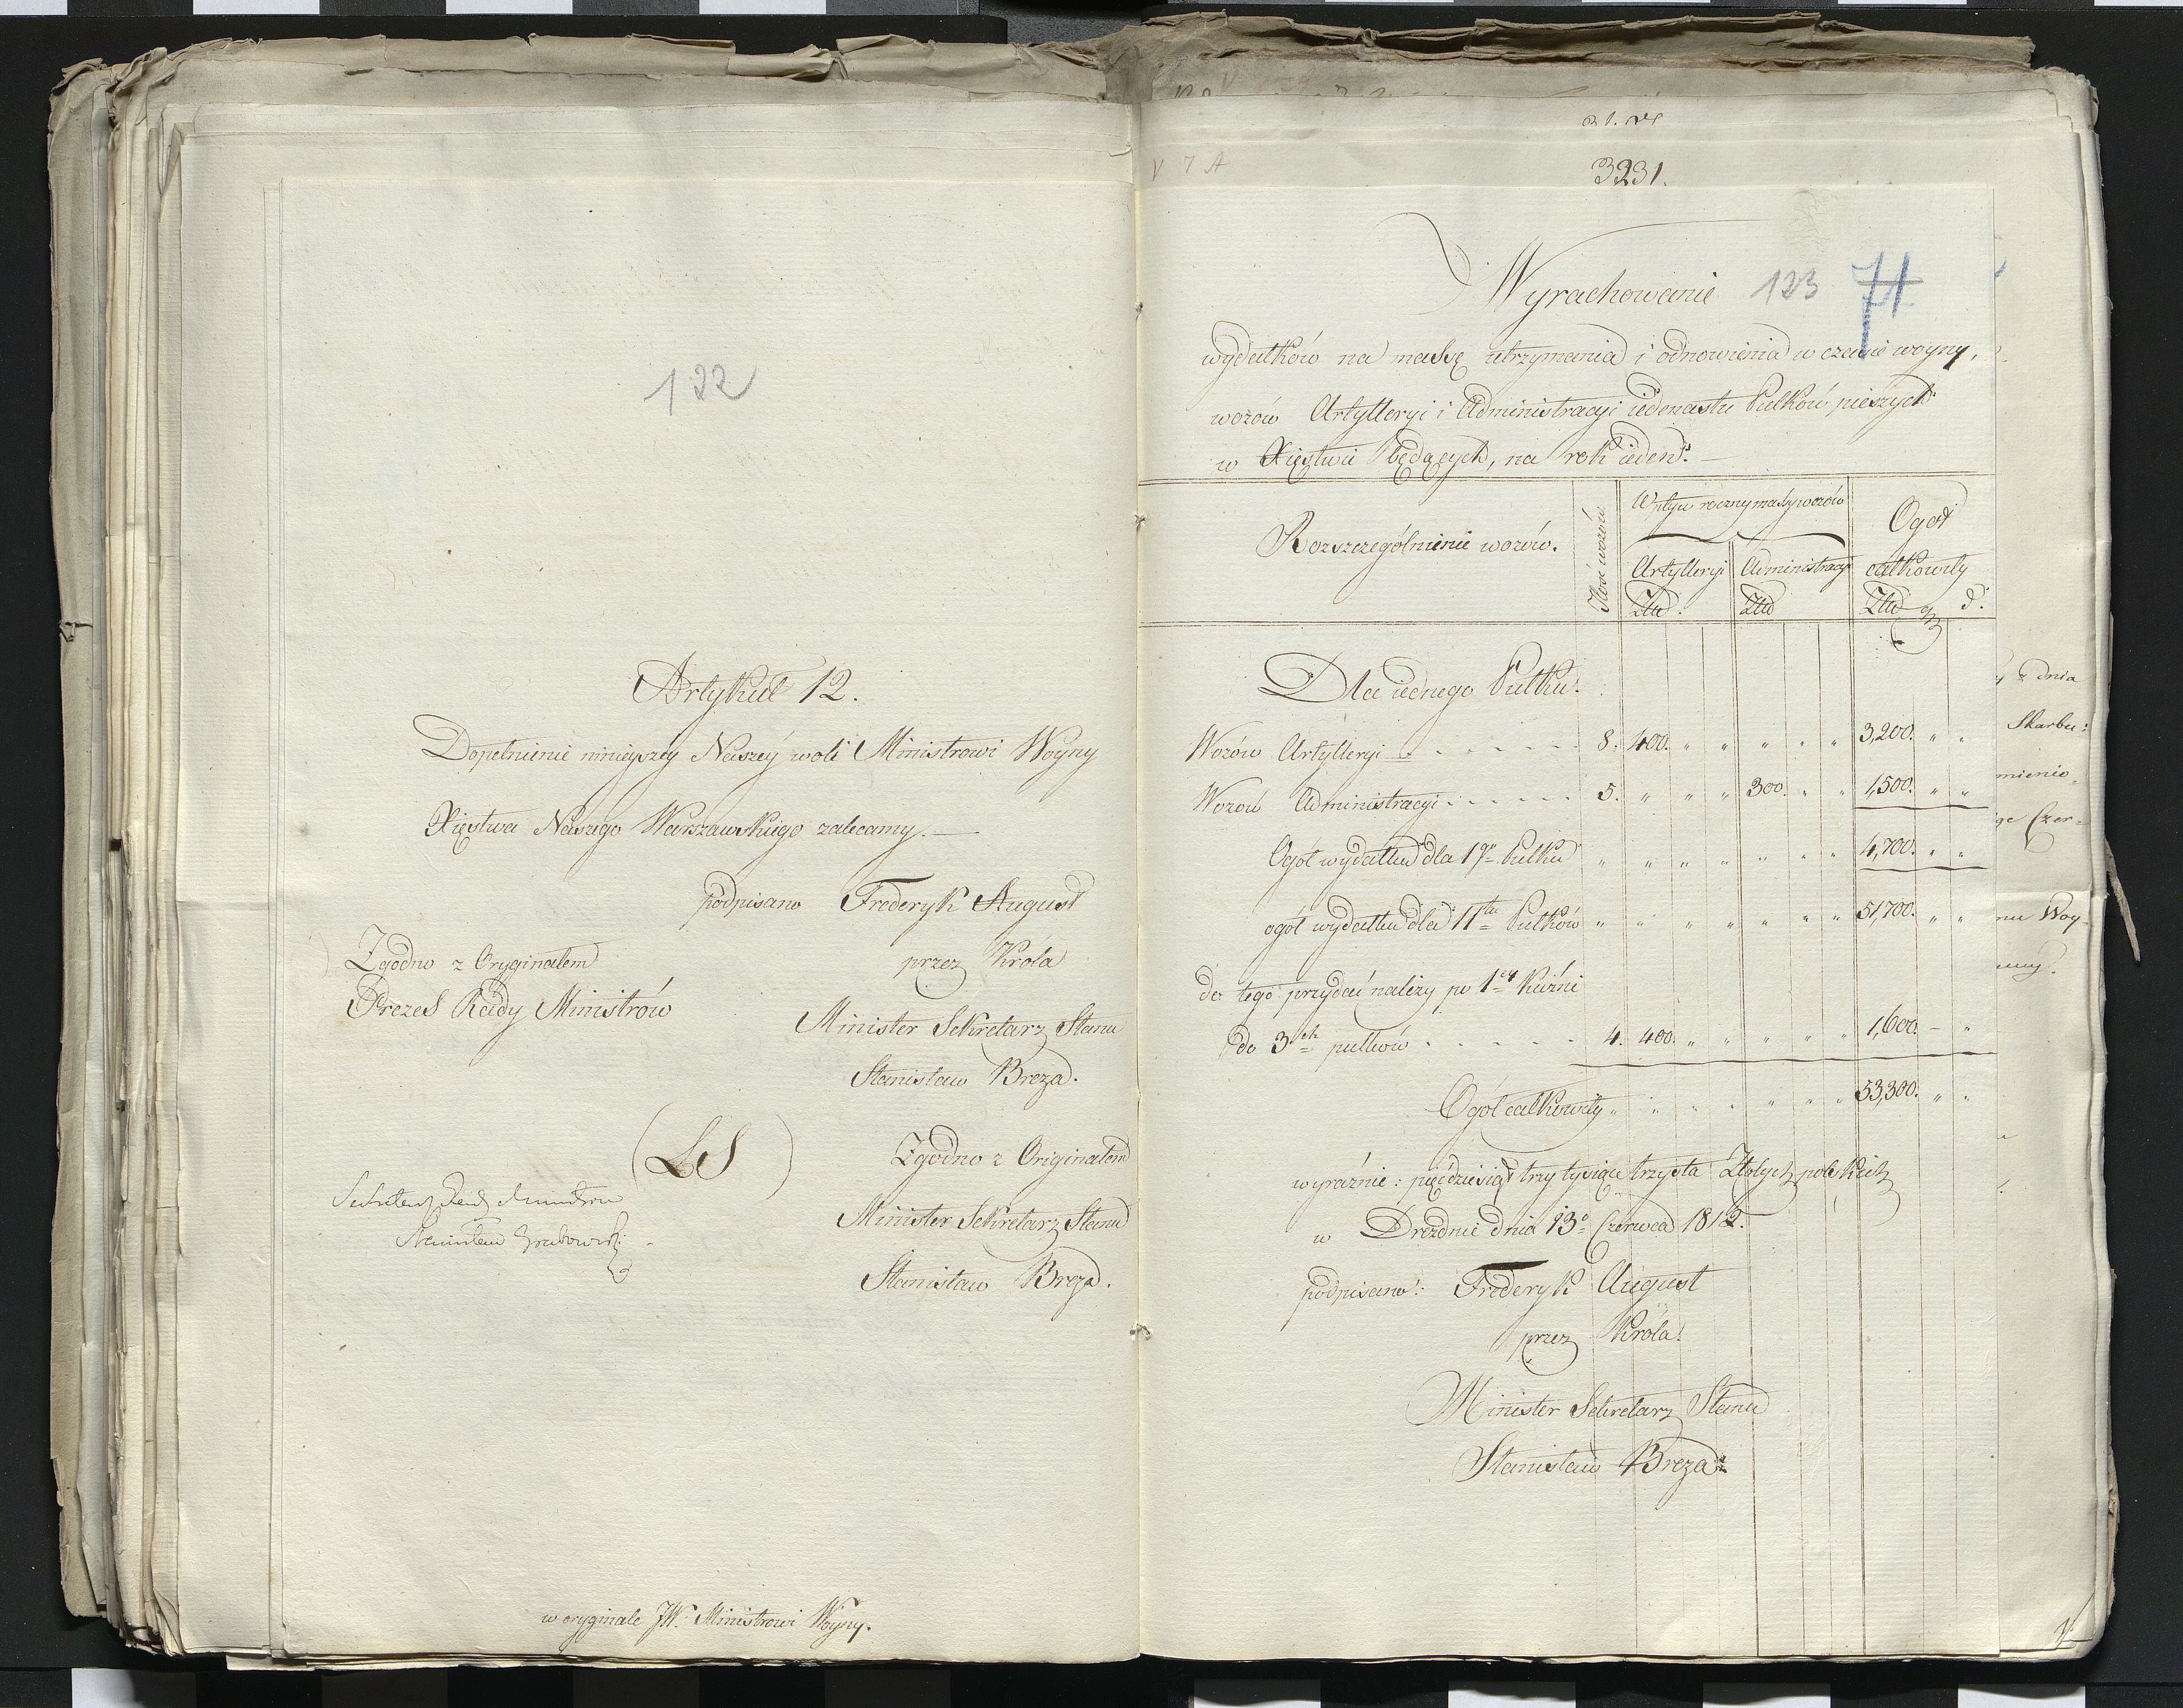 122
Artykuł 12.
Dopełnienie ninieyszey Naszey woli Ministrowi Woyny
Xięstwa Naszego Warszawskiego zalecamy. —
podpisano Frederyk August
Zgodno z Oryginałem
przez Króla
Prezes Rady Ministrów
Minister Sekretarz Stanu
Stanisław Breza.
(LS)
Zgodno z Originałem
Minister Sekretarz Stanu
Stanisław Breza.
Stanisław Grabowski
w oryginale JW. Ministrowi Woyny.
V 7 A
3231.
Wyrachowanie 123 71
wydatków na massę utrzymania i odnowienia w czasie woyny,
wozów Artylleryi i Administracyi iedenastu Pułków pieszych
w Xięstwie będących, na rok ieden. —
Rozszczególnienie wozów.
Ilość wozów
Wpływ roczny massy wozów
Ogół
całkowity
Artylleryi
Administracyi
Złtd.
Złtd
Złtd gr d.
Dla iednego Pułku.
Wozów Artylleryi . . . . . . 8. 400. " " " " " 3,200. " "
Wozów Administracyi . . . . . . 5. " " " 300. " " 1,500. " "
Ogół wydatku dla 1go Pułku " " " " " " " 4,700. " "
ogół wydatku dla 11tu Pułków " " " " " " " 51,700. " "
do tego przydać należy po 1ey Kuźni
do 3ch pułków . . . . . . 4. 400. " " " " " 1,600. — "
Ogół całkowity " " " " " " " 53,300. " "
wyraźnie: pięćdziesiąt trzy tysiące trzysta Złotych polskich
w Dreźnie dnia 13o Czerwca 1812.
podpisano: Frederyk August
przez Króla
Minister Sekretarz Stanu
Stanisław Breza
z dnia
Skarbu:
mienio=
Czer=
nu Woy